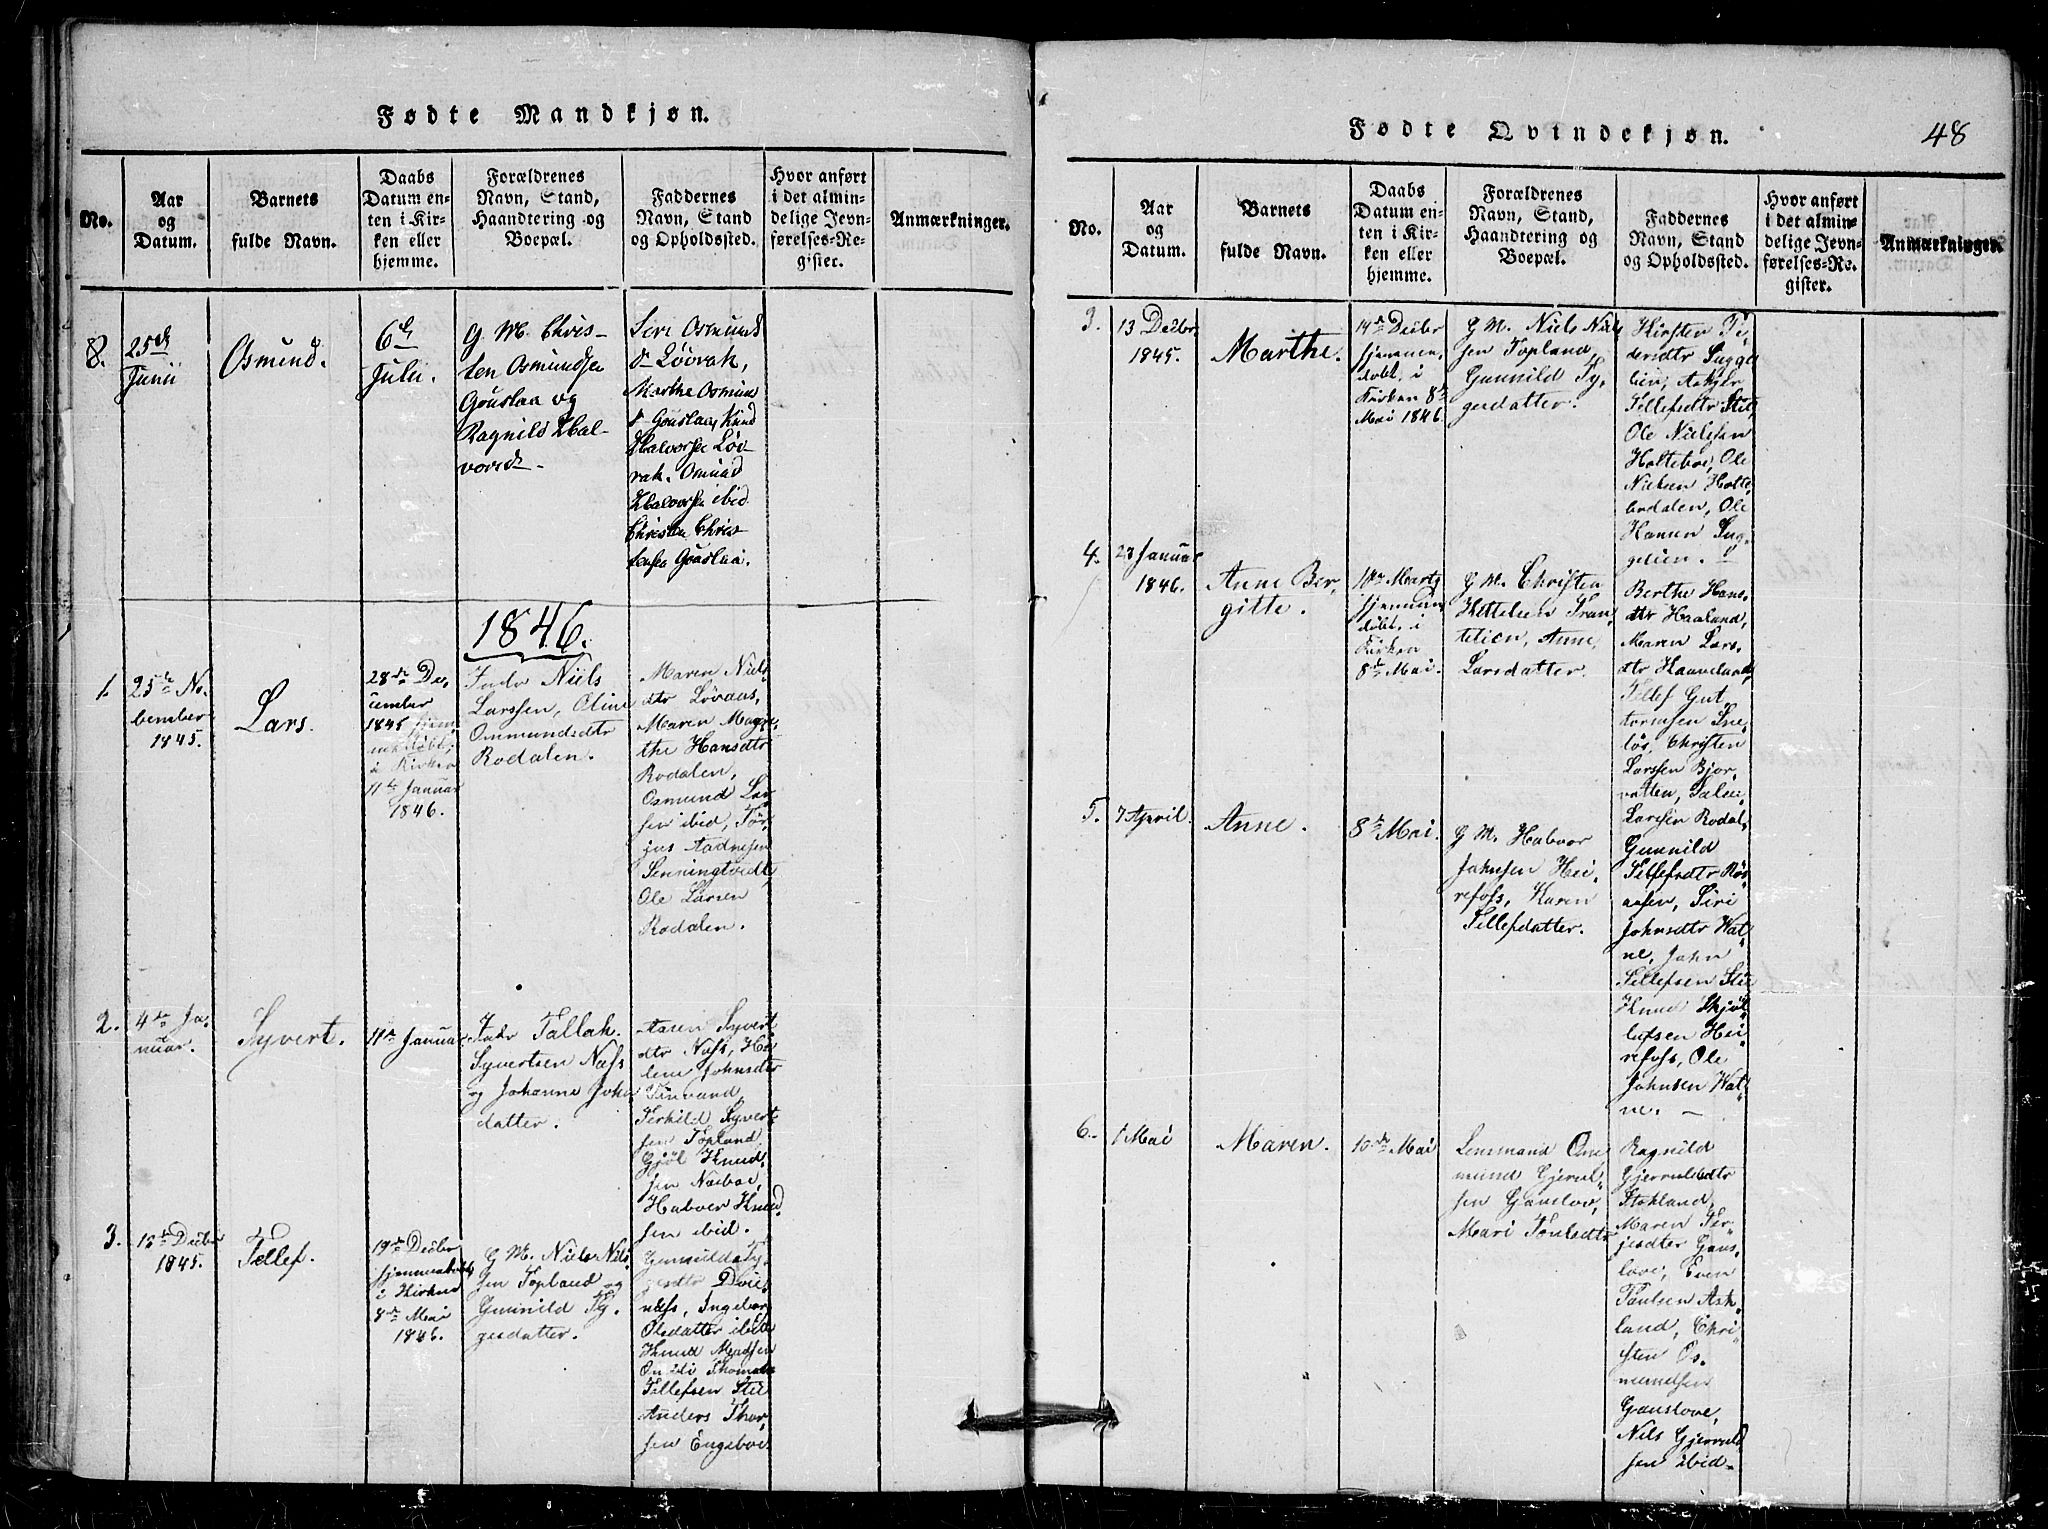 Fødte Mandkjøn.
No.
Aar
og
Datum.
Barnets
fulde Navn.
Daabs
Datum en-
ten i Kir-
ken eller
hjemme.
Forældrenes
Navn, Stand,
Haandtering og
Boepæl.
Faddernes
Navn, Stand
og Opholdssted.
Hvor anført
i det almin-
delige Jevn-
førelses-Re-
gister.
Anmærkninger.
8.
25de
Junii
Osmund.
6te
Julii.
G. M. Chris-
ten Osmundsen
Gouslaa og
Ragnild Hal-
vorsd.
Siri Osmunds
d. Løvrak,
Marthe Osmund
d. Gouslaa, Knud
Halvorsen Løv-
rak, Osmund
Halvorsen ibid
Christen Chris-
tensen Gouslaa.
1846.
1.
25de No-
vember
1845.
Lars.
28de De-
cember
1845 hjem-
medøbt,
i Kirken
11te Januar
1846.
Inds Niels
Larssen, Oline
Osmundsdtr
Rodalen.
Maren Niels
dtr Løvaas,
Maren Magre-
the Hansdtr
Rodalen,
Osmund Lar-
sen ibid, Tør-
jus Aadnesen
Senningtvedt,
Ole Larsen
Rodalen.
2.
4de Ja-
nuar.
Syvert.
11te Januar
Inds Tallak
Syvertsen Næss
og Johanne Johns
datter.
Karen Syvert
dtr Næss, He-
lene Johnsdtr
Tinvand,
Terkild Syvert
sen Topland,
Gjøl Knud-
sen Næsboe,
Halvor Knud-
sen ibid.
3.
18de Decbr
1845.
Tellef.
19de Decbr
hjemmedøbt,
i Kirken
8de Mai
1846.
G. M. Niels Niel-
sen Topland og
Gunnild Ty-
gesdatter.
Gunnild Ty-
gesdtr Dvie-
næss, Ingebor
Olsdatter ibid
Knud Madsen
Thomas
Tellefsen Stie
Anders Thor-
sen Engeboe.
Fødte Qvindekjøn.
48
No.
Aar
og
Datum.
Barnets
fulde Navn.
Daabs
Datum en-
ten i Kir-
ken eller
hjemme.
Forældrenes
Navn, Stand,
Haandtering og
Boepæl.
Faddernes
Navn, Stand
og Opholdssted.
Hvor anført
i det almin-
delige Jevn-
førelses-Re-
gister.
Anmærkninger.
3.
13 Decbr
1845.
Marthe.
14de Decbr
hjemme-
døbt, i
Kirken 8de
Mai 1846.
G. M. Niels Niel-
sen Topland,
Gunnild Ty-
gesdatter.
Kirsten Pe-
dersdtr Sugge-
lien, Askjer
Tellefsdtr Stie,
Ole Nielsen
Holteboe, Ole
Nielsen Holte-
bodalen, Ole
Hansen Sug-
gelien.
4.
23 Januar
1846.
Anne Ber-
gitte.
10de Marts
hjemme-
døbt, i
Kirken
8de Mai.
G. M. Christen
Kittelsen Tran-
tetien, Anne
Larsdatter.
Berthe Hans-
dtr Haaland,
Maren Lars-
dtr Haaveland,
Tellef Gut-
tormsen Sne-
løs, Christen
Larssen Bjor-
vatten, Salve
Larssen Rodal.
5.
7 April.
Anne.
8de Mai.
G. M. Halvor
Johnsen Hei-
refoss, Karen
Tellefdatter.
Gunnild
Tellefsdtr Røs-
aasen, Siri
Johnsdtr Wat-
ne, John
Tellefsen Stie
Knud Skjøl-
lufsen Hei-
refoss, Ole
Johnsen Wat-
ne.
6.
1 Mai
Maren.
10de Mai
Lensmand Os-
mund Gjerul-
sen Gauslov,
Mari Poulsdtr
Ragnild
Gjerulsdtr
Stokland,
Maren Ter-
jesdter Gaus-
love, Even
Poulsen Ask-
land, Chri-
sten Os-
mundsen
Gauslove,
Nils Gjeruld-
sen ibid.